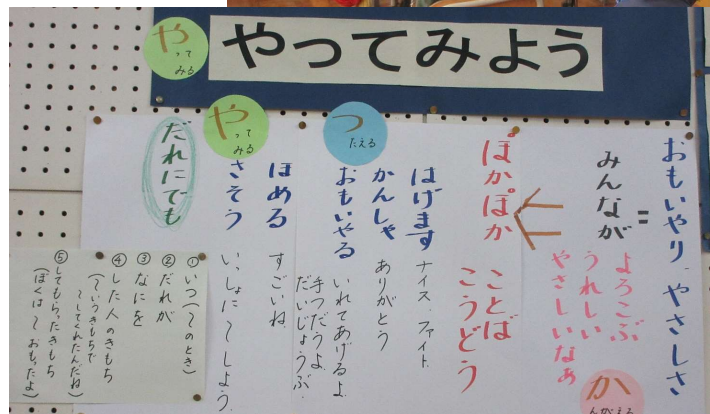 やってみる
やってみよう
おもいやり、やさしさ
=
みんなが
よろこぶ
うれしい
やさしいなあ
かんがえる
ぽかぽか
ことば
こうどう
つたえる
はげます ナイス、ファイト
かんしゃ ありがとう
おもいやる いれてあげるよ
手つだうよ
だいじょうぶ
ほめる すごいね
やってみる
さそう いっしょに〜しよう
だれにでも
①いつ(〜のとき)
②だれが
③なにを
④した人のきもち
(〜いうきもちで
〜してくれたんだね)
⑤してもらったきもち
(ぼくは〜おもったよ)